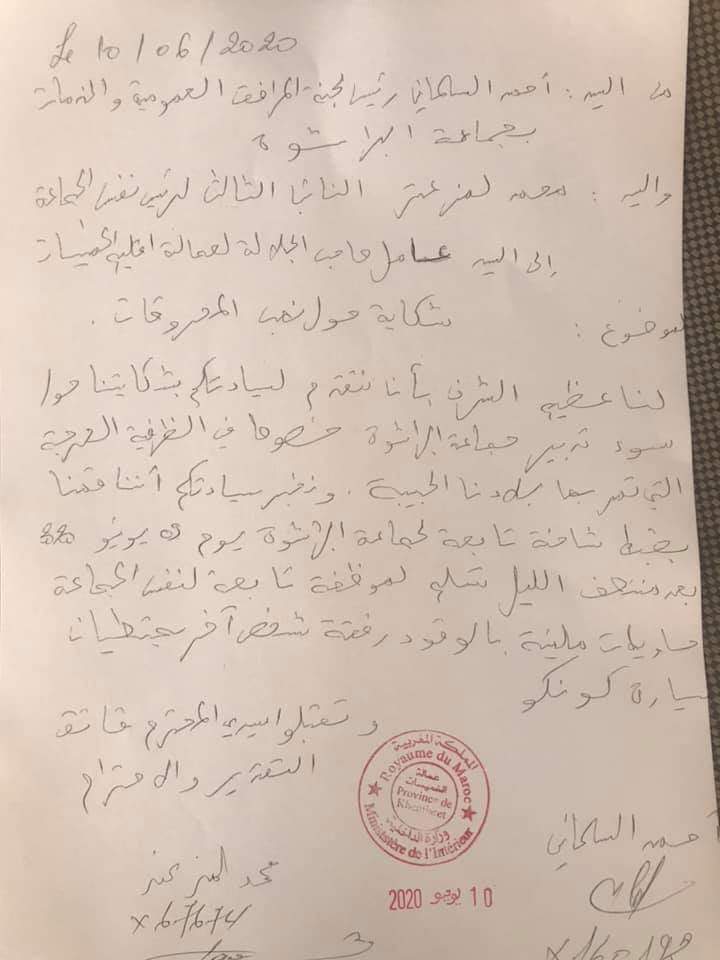 Le 10/06/2020
من السيد : أحمد السلماني رئيس لجنة المرافق العمومية والخدمات
بجماعة البراشوة
والسيد : محمد لمزعتر النائب الثالث لرئيس نفس الجماعة
إلى السيد عامل صاحب الجلالة لعمالة اقليم الخميسات
الموضوع : شكاية حول نهب المحروقات .
لنا عظيم الشرف بأن نتقدم لسيادتكم بشكايتنا حول
سوء تدبير جماعة البراشوة خصوصا في الظرفية الحرجة
التي تمر بها بلادنا الحبيبة . ونخبر سيادتكم أننا قمنا
بضبط شاحنة تابعة لجماعة البراشوة يوم يونيو
بعد منتصف الليل تسلم لموظفة تابعة لنفس الجماعة
حاويات مليئة بالوقود رفقة شخص آخر يمتطيان
سيارة كونكو
وتقبلوا سيدي المحترم فائق
التقدير والاحترام
المملكة المغربية
Royaume du Maroc
عمالة
الخميسات
Province de
Khemisset
وزارة الداخلية
Ministère de l'Intérieur
10 يونيو 2020
أحمد السلماني
محمد